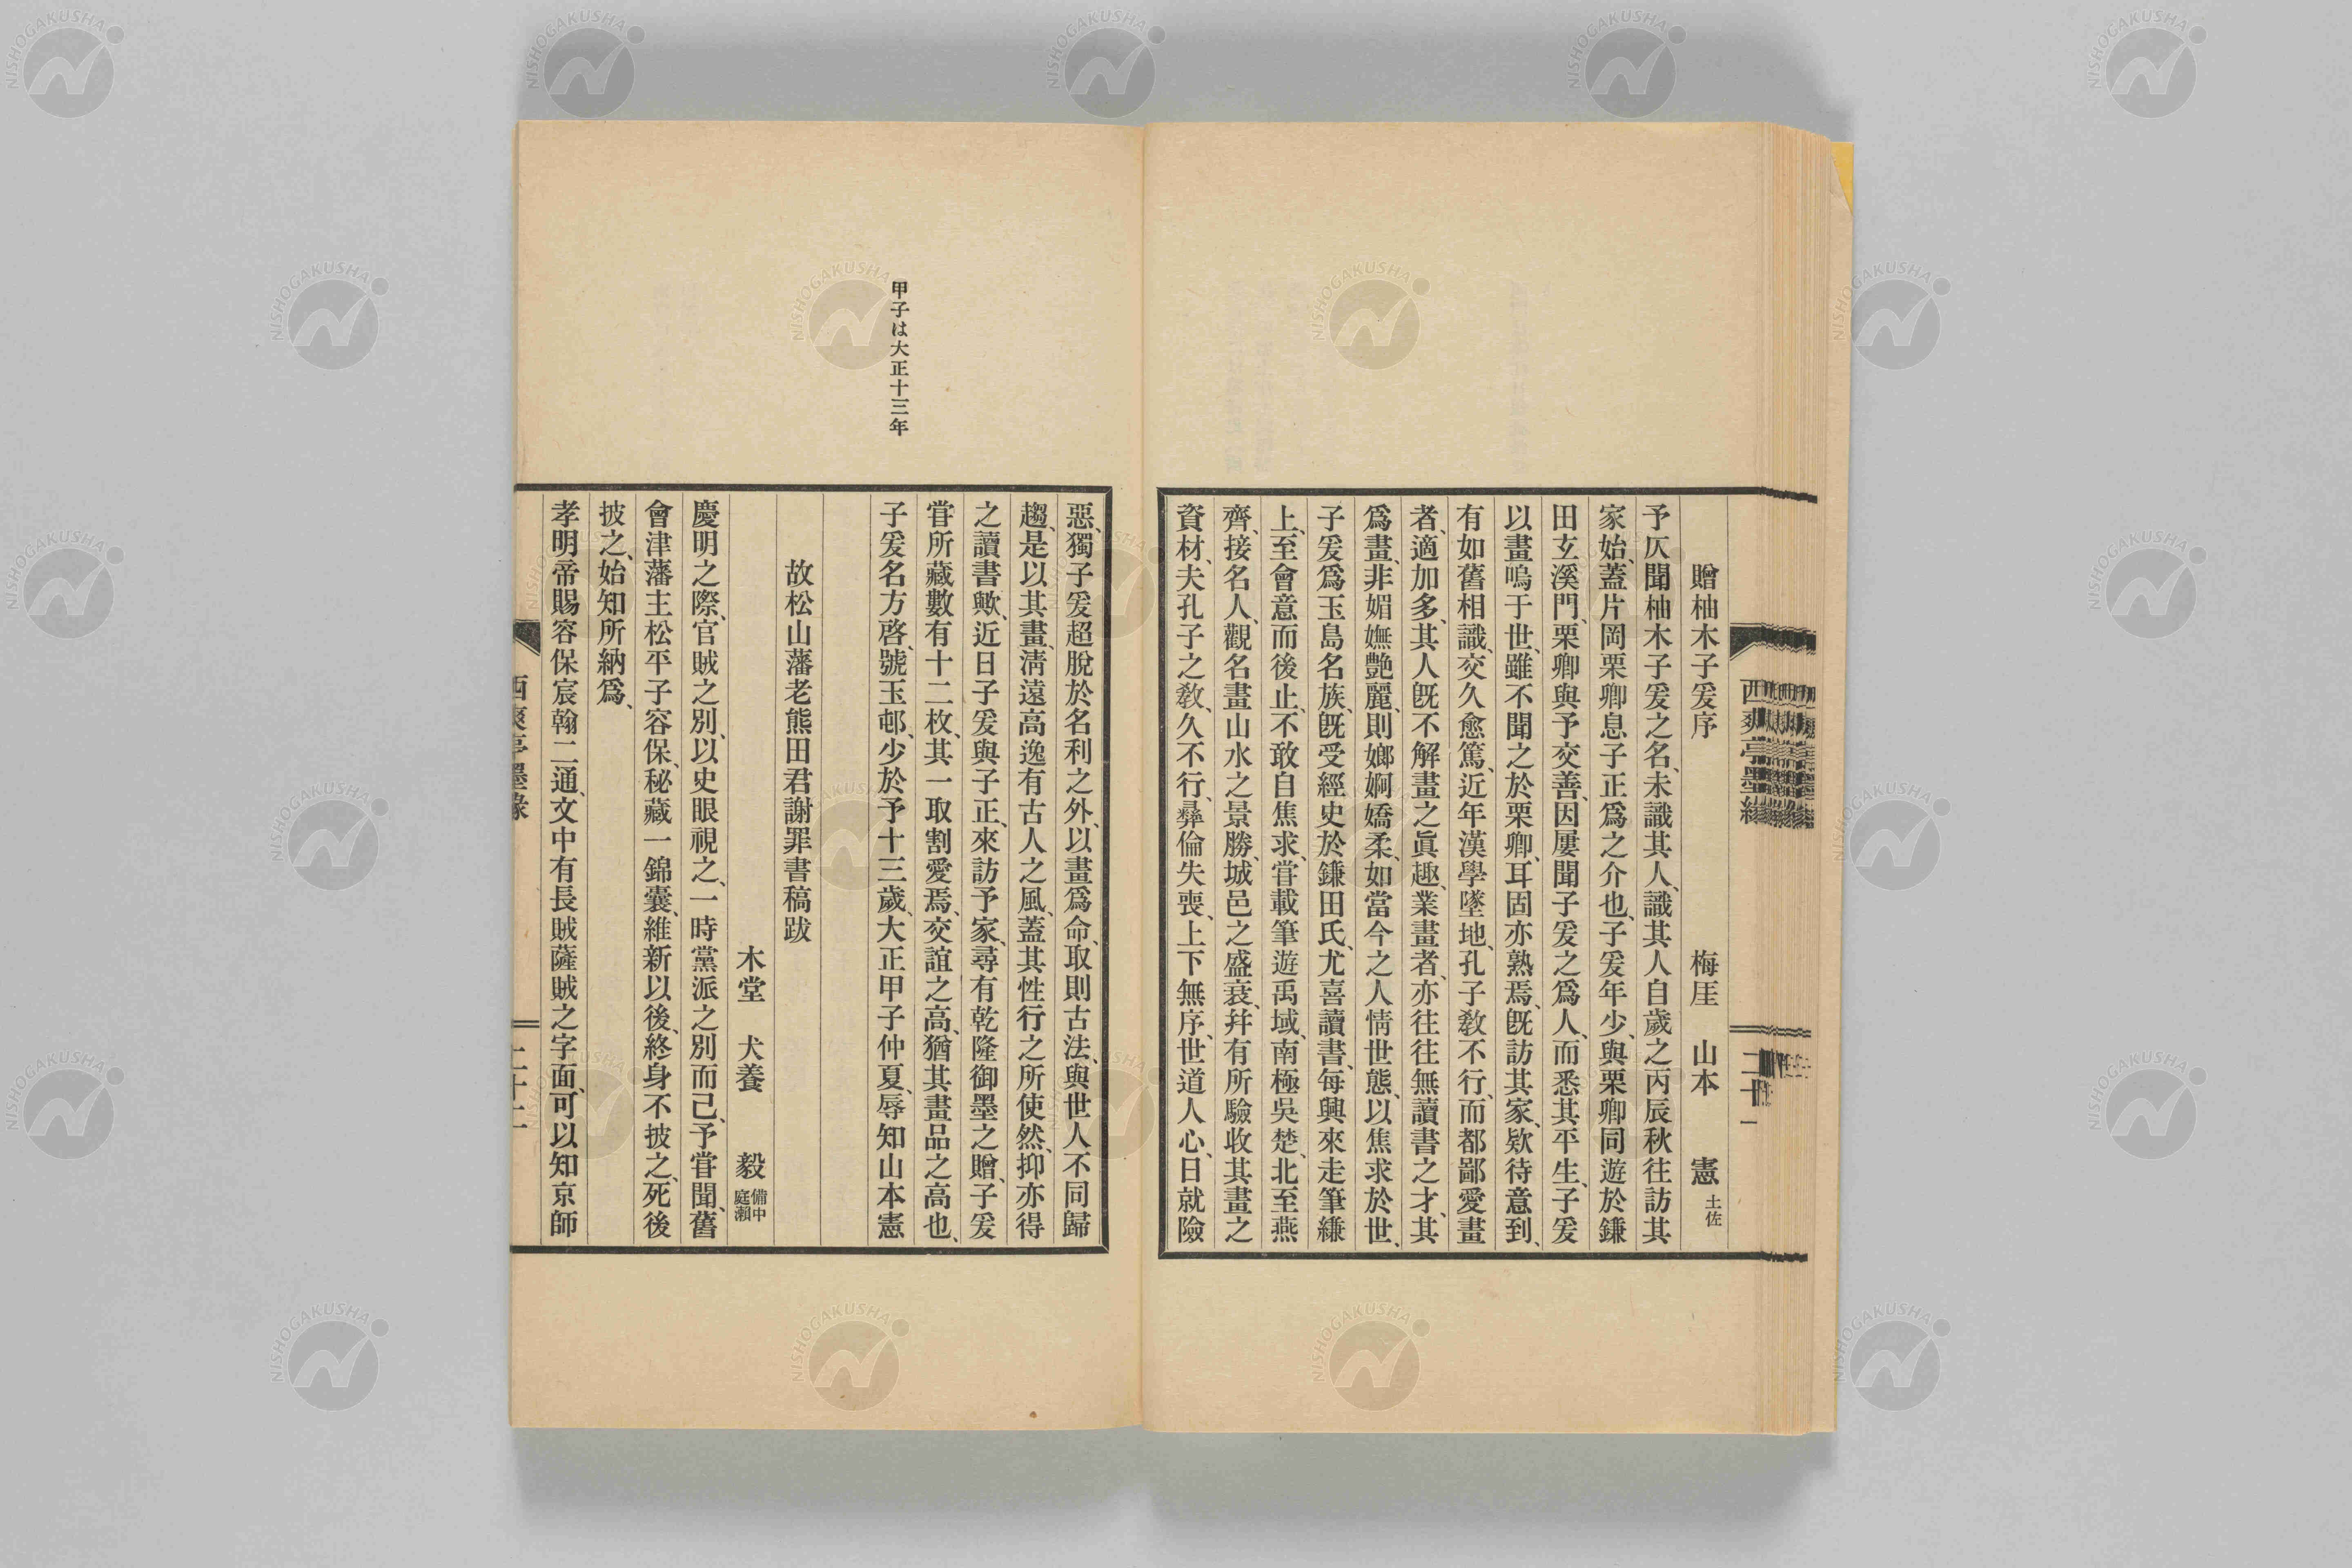 贈柚木子爰序　梅厓　山本　憲　土佐
予仄聞柚木子爰之名、未識其人、識其人自歲之丙辰秋往訪其
家始、蓋片岡栗卿息子正爲之介也、子爰年少、與栗卿同遊於鎌
田玄溪門、栗卿與予交善、因屢聞子爰之爲人、而悉其平生、子爰
以畫鳴于世、雖不聞之於栗卿、耳固亦熟焉、既訪其家、欵待意到、
有如舊相識、交久愈篤、近年漢學墜地、孔子敎不行、而都鄙愛畫
者、適加多、其人既不解畫之眞趣、業畫者、亦往往無讀書之才、其
爲畫、非媚嫵艶麗、則嫏婀嬌柔、如當今之人情世態、以焦求於世、
子爰爲玉島名族、既受經史於鎌田氏、尤喜讀書、每興來走筆縑
上、至會意而後止、不敢自焦求、甞載筆遊禹域、南極吳楚、北至燕
齊、接名人、觀名畫山水之景勝、城邑之盛衰、幷有所驗收其畫之
資材、夫孔子之敎、久不行、彜倫失喪、上下無序、世道人心、日就險
西爽亭墨縁
二十一
甲子は大正十三年
惡、獨子爰超脫於名利之外、以畫爲命、取則古法、與世人不同歸
趨、是以其畫、淸遠高逸有古人之風、蓋其性行之所使然、抑亦得
之讀書歟、近日子爰與子正、來訪予家、尋有乾隆御墨之贈、子爰
甞所藏數有十二枚、其一取割愛焉、交誼之高、猶其畫品之高也、
子爰名方啓、號玉邨、少於予十三歲、大正甲子仲夏、辱知山本憲
故松山藩老熊田君謝罪書稿跋
木堂　犬養　毅　備中庭瀨
慶明之際、官賊之別、以史眼視之、一時黨派之別而己、予甞聞、舊
會津藩主松平子容保、秘藏一錦囊、維新以後、終身不披之、死後
披之、始知所納爲、
孝明帝賜容保宸翰二通、文中有長賊薩賊之字面、可以知京師
西爽亭墨縁
二十二